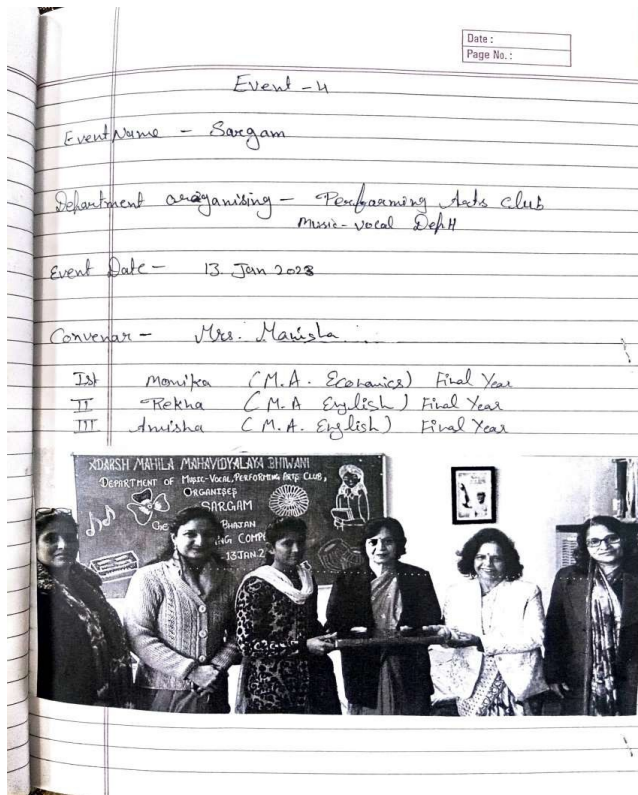 Date :
Page No. :
Event - 4
Event Name - Sargam
Department oraganising - Perfoarming Arts club
Music - vocal Deptt
Event Date - 13 Jan 2023
Convenar - Mrs. Manisha
Ist Monika (M.A. Economics) Final Year
II Rekha (M.A English) Final Year
III Amisha (M.A. English) Final Year
ADARSH MAHILA MAHAVIDYALAYA BHIWANI
DEPARTMENT OF MUSIC-VOCAL, PERFORMING ARTS CLUB,
ORGANISES
SARGAM
BHAJAN
ING COMPE
13 JAN.2